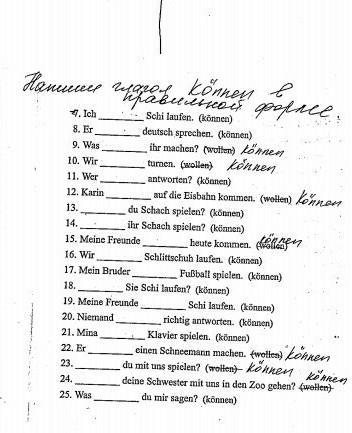 Напиши глагол können в
правильной форме.
7. Ich ________ Schi laufen. (können)
8. Er ________ deutsch sprechen. (können)
9. Was ________ ihr machen? (wollen) können
10. Wir ________ turnen. (wollen) können
11. Wer ________ antworten? (können)
12. Karin ________ auf die Eisbahn kommen. (wollen) können
13. ________ du Schach spielen? (können)
14. ________ ihr Schach spielen? (können)
15. Meine Freunde ________ heute kommen. (wollen) können
16. Wir ________ Schlittschuh laufen. (können)
17. Mein Bruder ________ Fußball spielen. (können)
18. ________ Sie Schi laufen? (können)
19. Meine Freunde ________ Schi laufen. (können)
20. Niemand ________ richtig antworten. (können)
21. Mina ________ Klavier spielen. (können)
22. Er ________ einen Schneemann machen. (wollen) können
23. ________ du mit uns spielen? (wollen) können
24. ________ deine Schwester mit uns in den Zoo gehen? (wollen) können
25. Was ________ du mir sagen? (können)